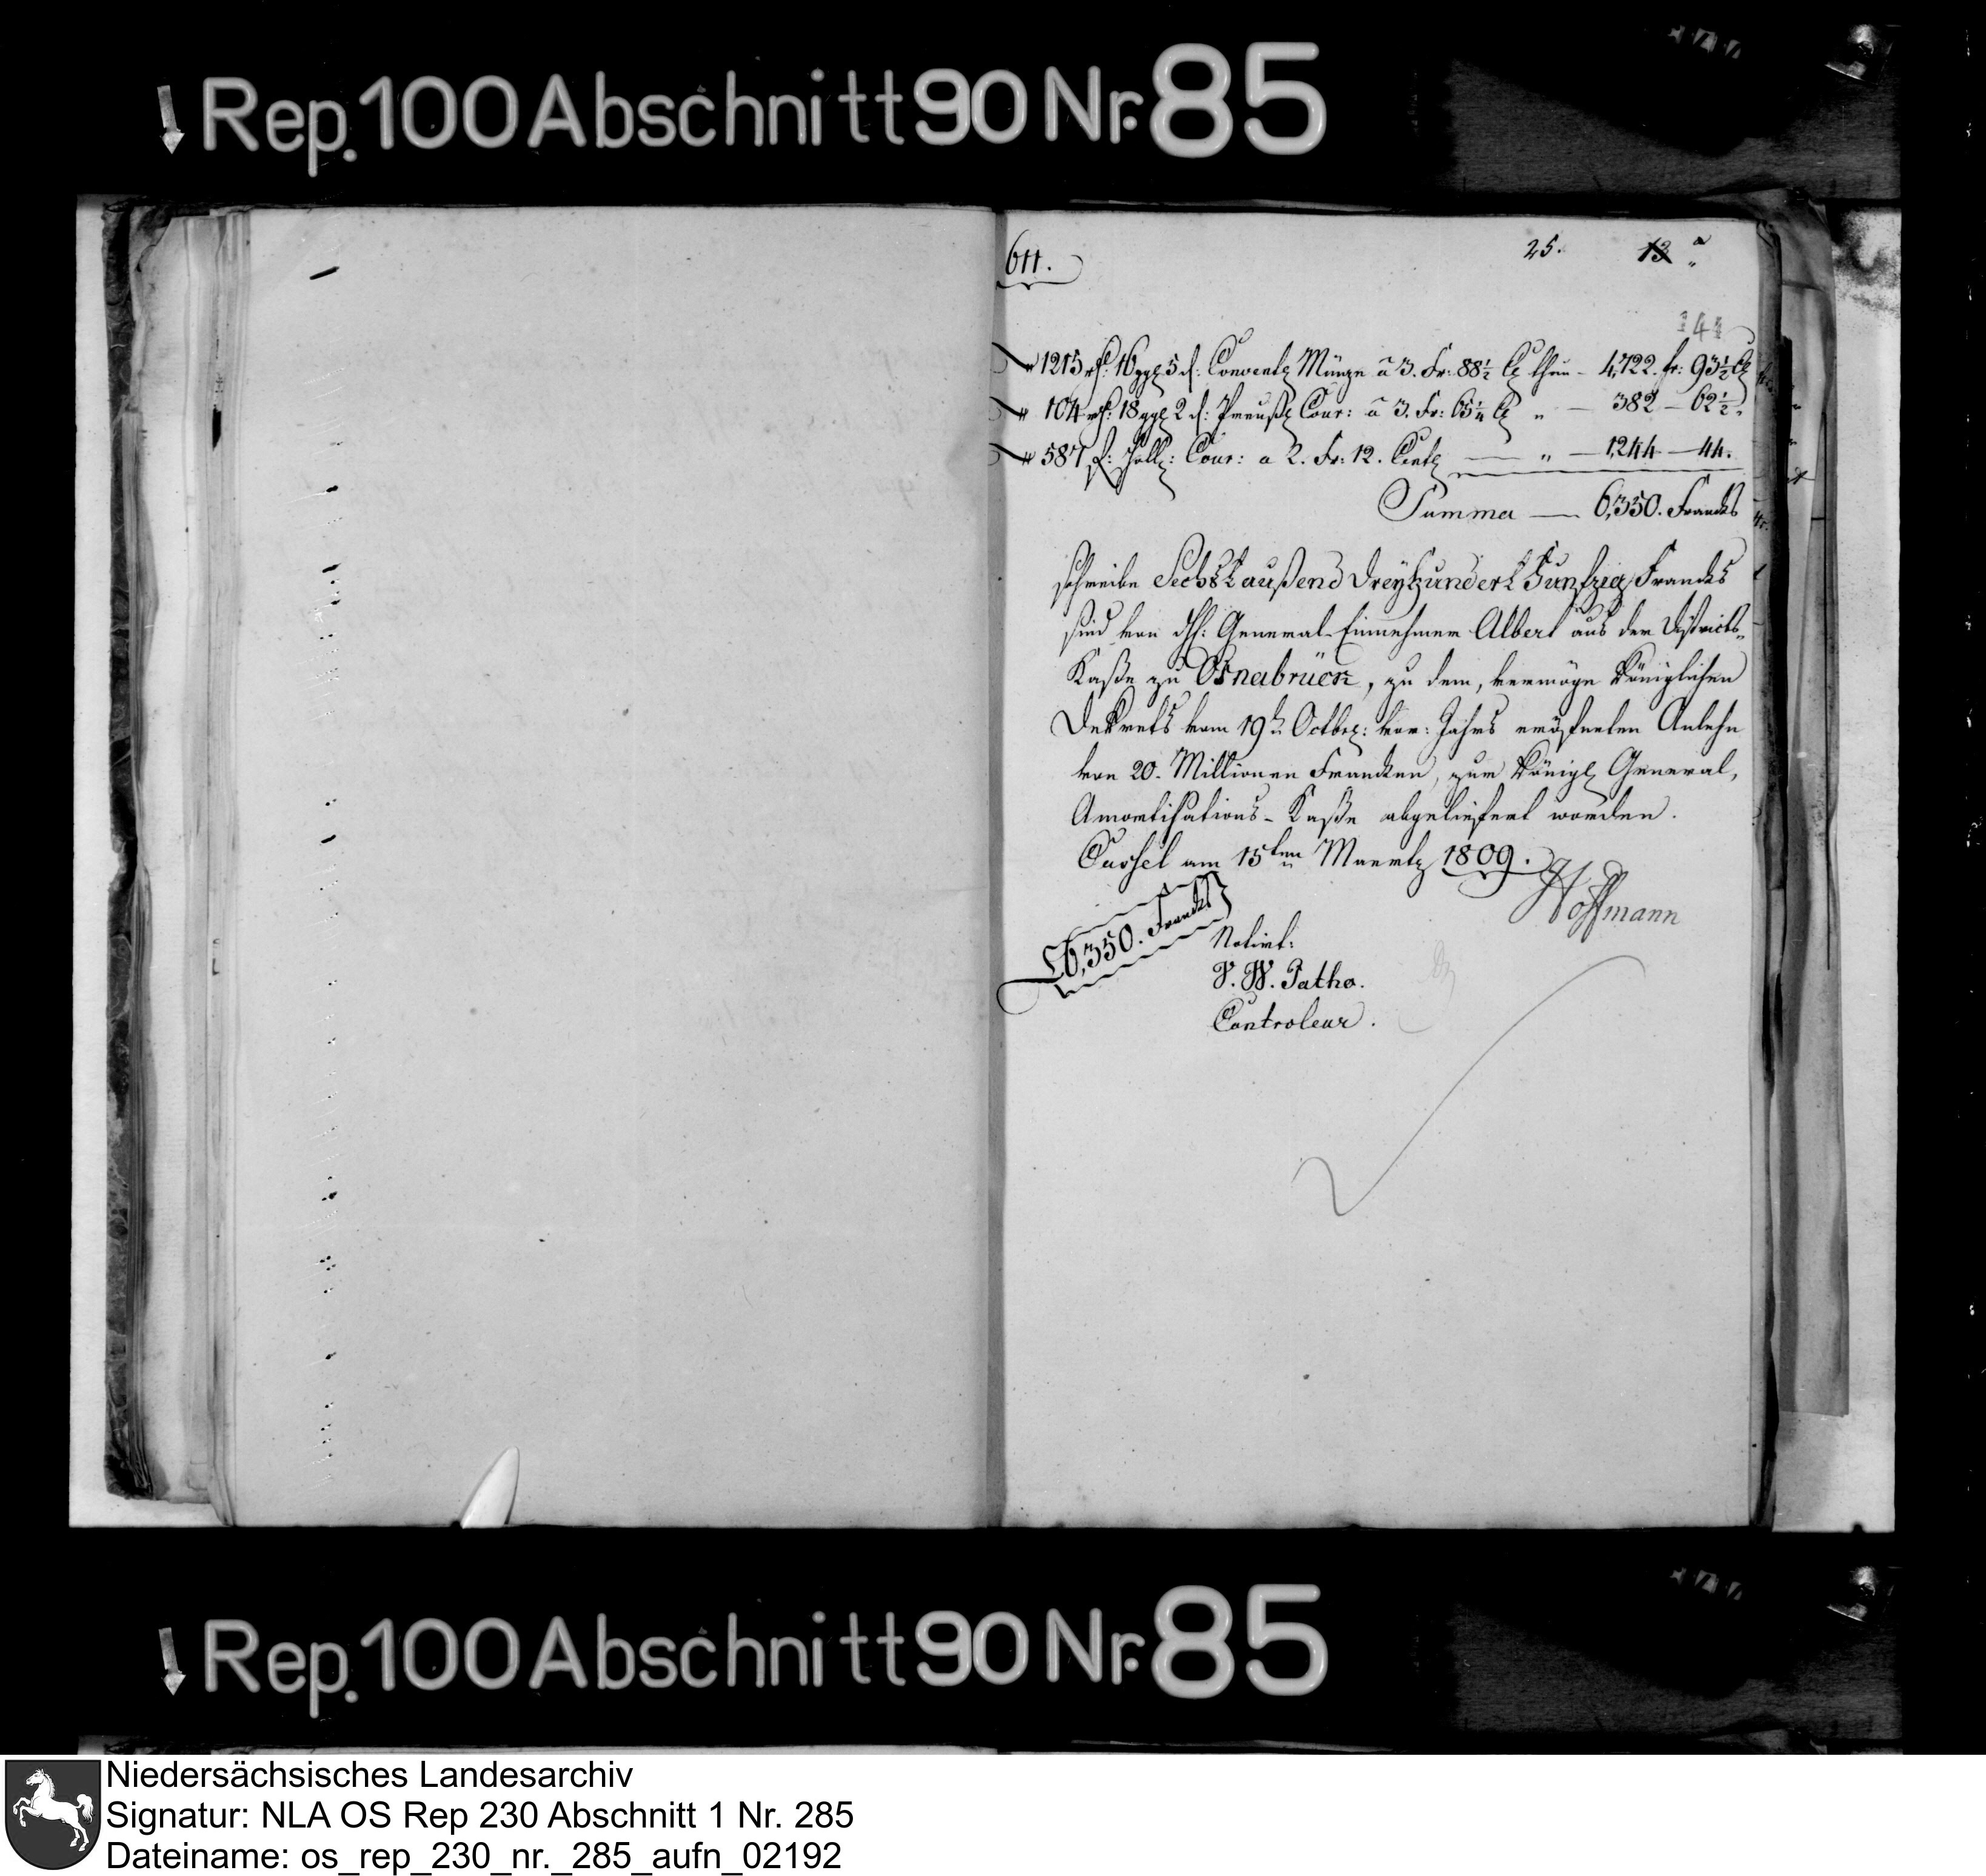 Rep. 100 Abschnitt 90 Nr. 85
611.
25. 13 a
1215 rth: 16 ggl 5 d: Convent Münze a 3. Fr: 88½ C thun - 4,722. fr: 93½ C
104 rth: 18 ggl 2 d: Preuß Cour: a 3. Fr: 65¼ C „ — 382 — 62½.
587 f: Holl: Cour: a 2. Fr: 12. Cent — „ — 1,244 — 44.
Summa — 6,350. Francks
schreibe Sechstaußend Dreyhundert Funfzig Francks
sind von dH: General-Einnehmer Albert aus der Districts-
Kaße zu Osnabrück, zu dem, vermöge Königlichen
Dekrets vom 19t Octbr: vor: Jahrs eröfneten Anlehn
von 20. Millionen Francken, zur Königl General-
Amortisations-Kaße abgeliefert worden.
Cassel am 15ten Maertz 1809.
Hoffmann
6,350. Francks
Notirt:
V. W. Patho.
Controleur.
Rep. 100 Abschnitt 90 Nr. 85
Niedersächsisches Landesarchiv
Signatur: NLA OS Rep 230 Abschnitt 1 Nr. 285
Dateiname: os_rep_230_nr._285_aufn_02192